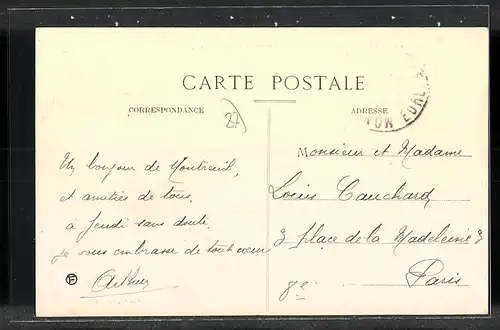 CARTE POSTALE
CORRESPONDANCE
27
ADRESSE
EURE
Un bonjour de Montreuil,
et amitiés de tous.
à Jeudi sans doute.
je vous embrasse de tout cœur
Arthur
F
Monsieur et Madame
Louis Cauchard
3 place de la Madeleine 3
Paris
8e